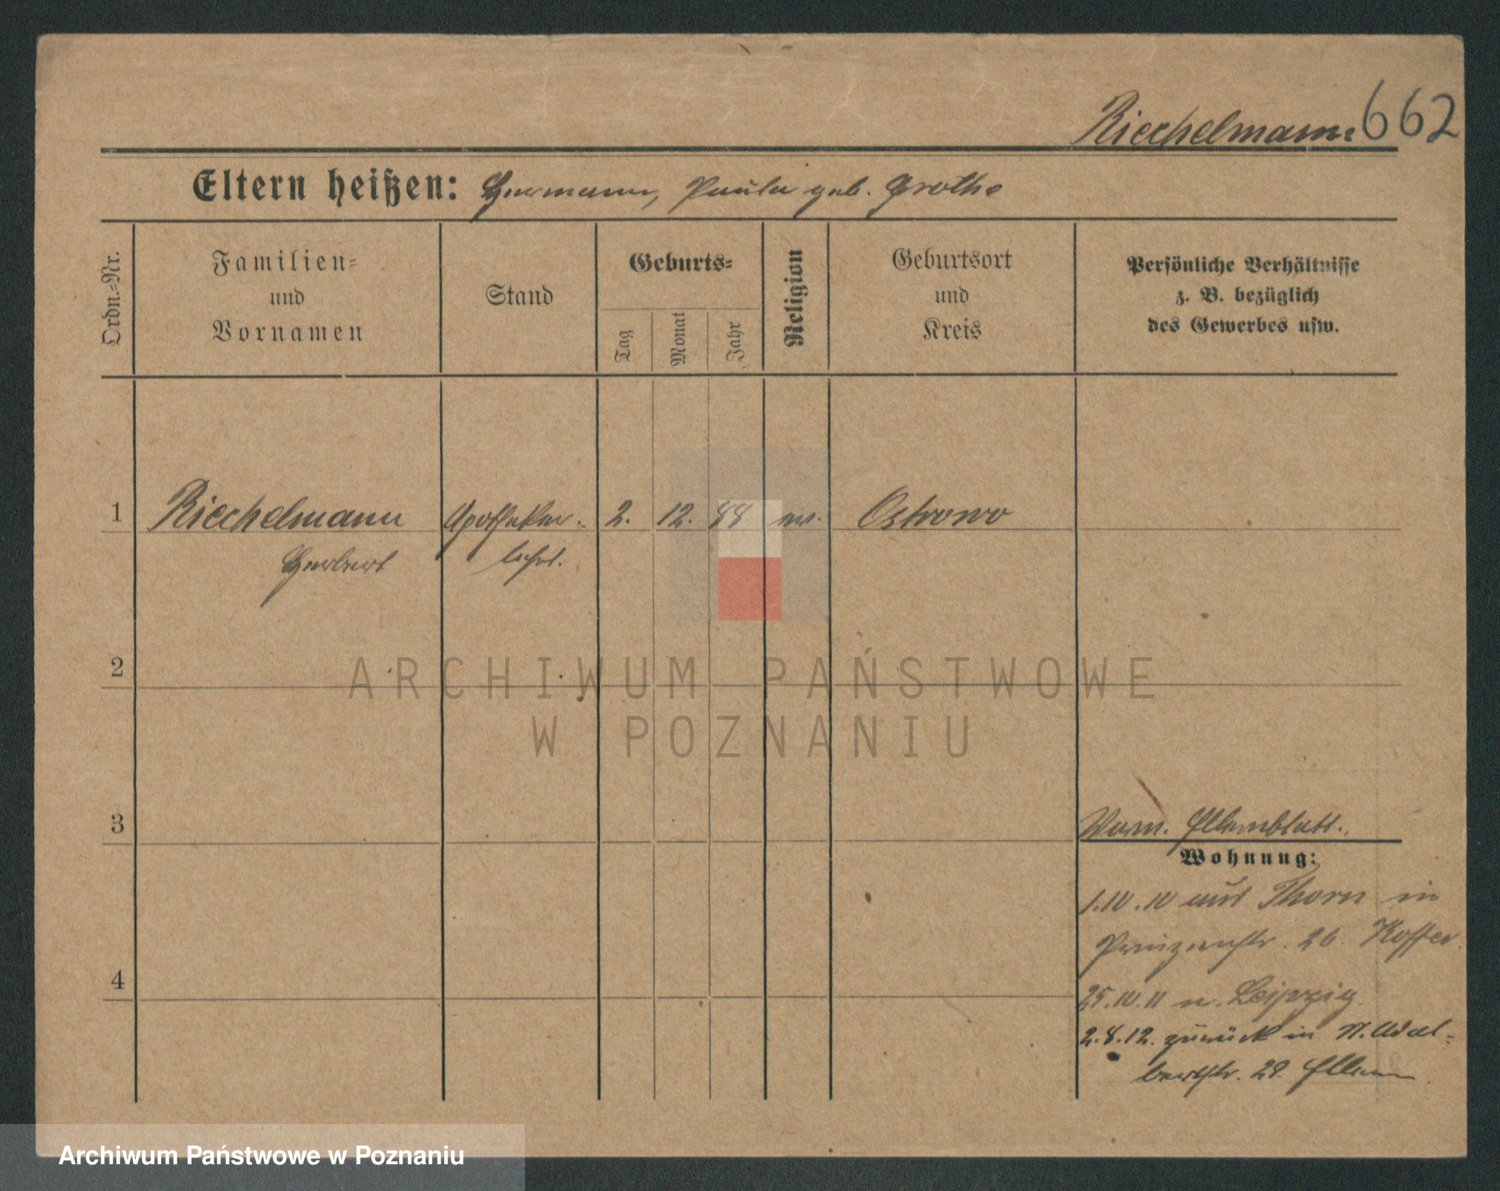 Riechelmann 662
Eltern heißen: Hermann, Paula geb. Grothe
Ordn.=Nr.
Familien=
und
Vornamen
Stand
Geburts=
Tag
Monat
Jahr
Religion
Geburtsort
und
Kreis
Persönliche Verhältnisse
z. B. bezüglich
des Gewerbes usw.
1 Riechelmann Apotheker= 2. 12. 88 ev. Ostrowo
Herbert lehrl.
2
ARCHIWUM PAŃSTWOWE
W POZNANIU
3
Vorm. Elternblatt.
Wohnung:
1.10.10 aus Thorn in
Prinzenstr. 26
4
25.10.11 n. Leipzig.
2.8.12. zurück in N. Adal=
bertstr. 29. Eltern
Archiwum Państwowe w Poznaniu